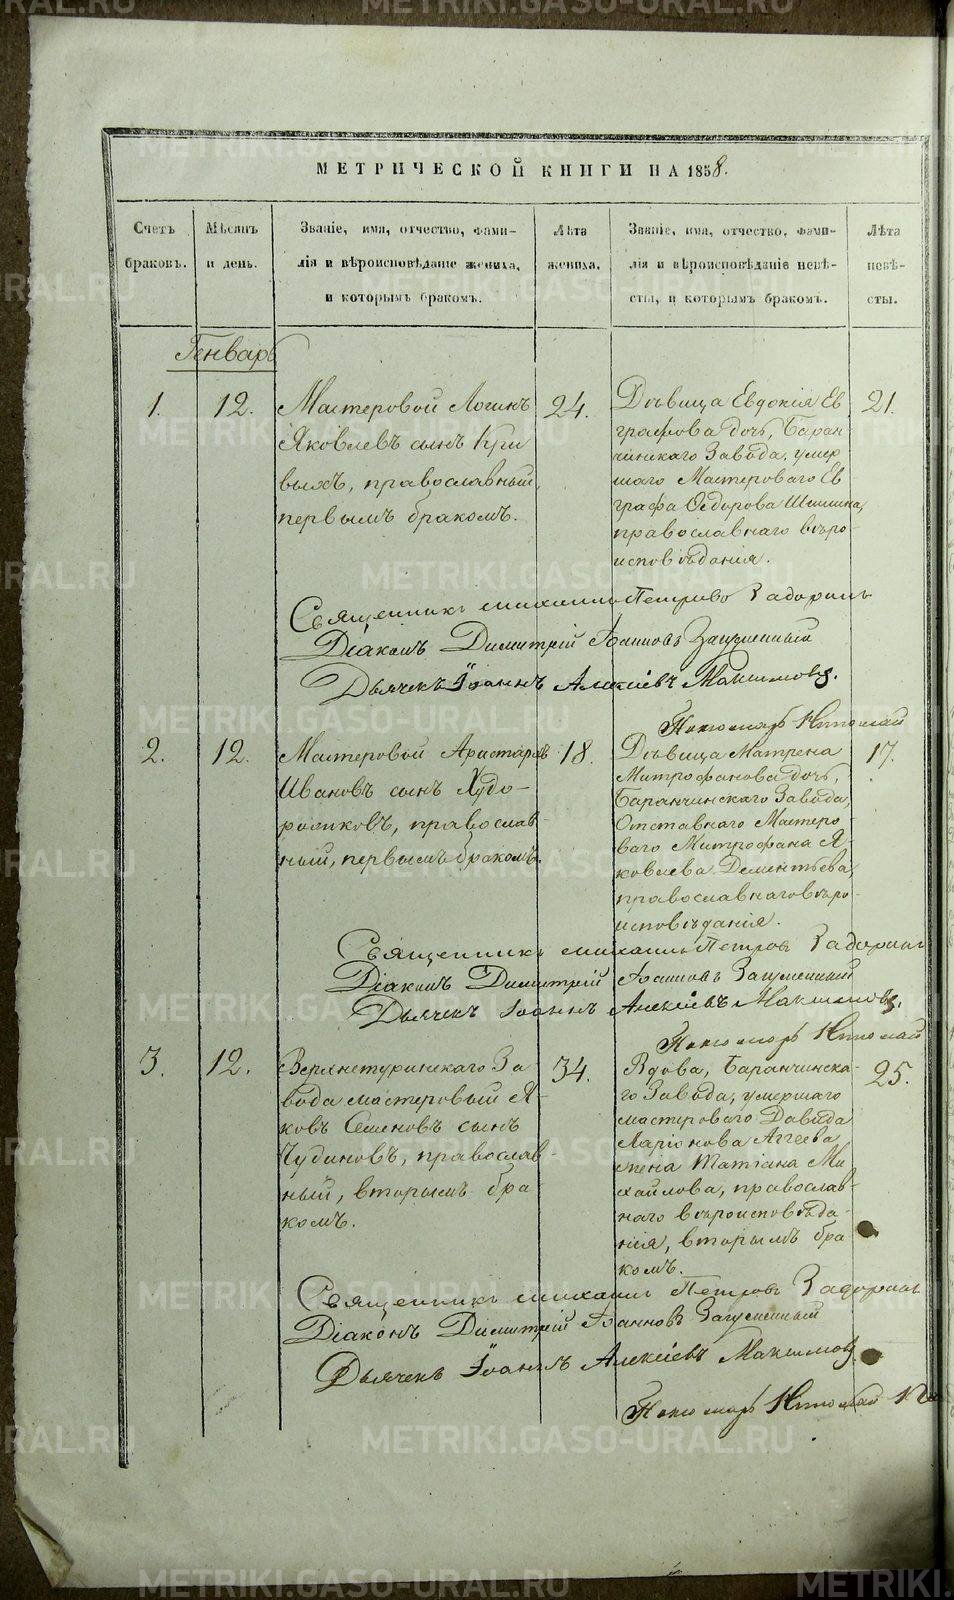 МЕТРИЧЕСКОЙ КНИГИ НА 1858.
Счетъ браковъ.
Мѣсяцъ и день.
Званіе, имя, отчество, фами-
лія и вѣроисповѣданіе жениха,
и которымъ бракомъ.
Лѣта жениха.
Званіе, имя, отчество, фами-
лія и вѣроисповѣданіе невѣ-
сты, и которымъ бракомъ.
Лѣта невѣ-
сты.
Генварь
1.
12.
Мастеровой Логинъ
Яковлевъ сынъ Кри
выхъ, православный,
первымъ бракомъ.
24.
Дѣвица Евдокія Ев
графова дочь, Баран
чинскаго Завода, умер
шаго Мастероваго Ев
графа Ѳедорова
православнаго вѣро
исповѣданія.
21.
Священникъ Михаилъ Петровъ Задоринъ
Діаконъ Димитрій Іоанновъ
Дьячекъ Іоаннъ Алексіевъ Максимовъ.
Пономарь Николай
2.
12.
Мастеровой Аристархъ
Ивановъ сынъ Худо-
рошковъ, православ-
ный, первымъ бракомъ.
18.
Дѣвица Матрена
Митрофанова дочь,
Баранчинскаго Завода,
Отставнаго Мастеро-
ваго Митрофана Я-
ковлева Дементьева,
православнаго вѣро-
исповѣданія.
17.
Священникъ Михаилъ Петровъ Задоринъ
Діаконъ Димитрій Іоанновъ
Дьячекъ Іоаннъ Алексіевъ Максимовъ.
Пономарь Николай
3.
12.
Верхнетуринскаго За
вода мастеровый Я-
ковъ Семеновъ сынъ
Чудиновъ, православ-
ный, вторымъ бра
комъ.
34.
Вдова, Баранчинска-
го Завода, умершаго
мастероваго Давида
Ларіонова Аггеева
жена Татіана Ми
хайлова, православ-
наго вѣроисповѣда-
нія, вторымъ бра
комъ.
25.
Священникъ Михаилъ Петровъ Задоринъ
Діаконъ Димитрій Іоанновъ
Дьячекъ Іоаннъ Алексіевъ Максимовъ.
Пономарь Николай
METRIKI.GASO-URAL.RU